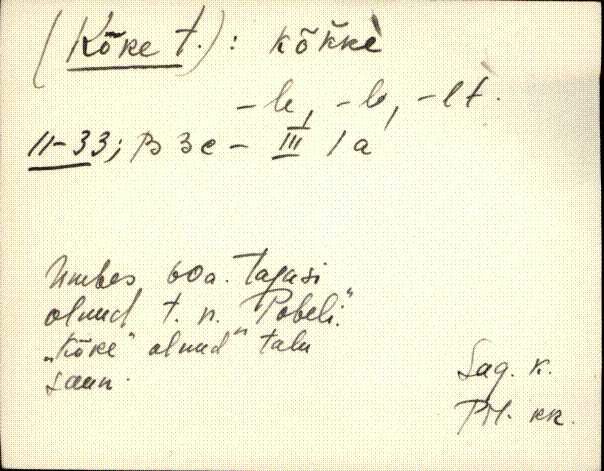 (Kõke t.): kõk̆kè
-le, -l, -lt.
11-33; B 3c - III 1a
Umbes 60a. tagasi
olnud t. n. "Pobeli."
"Kõke" olnud talu
saun.
Sag. k.
PM. kk.